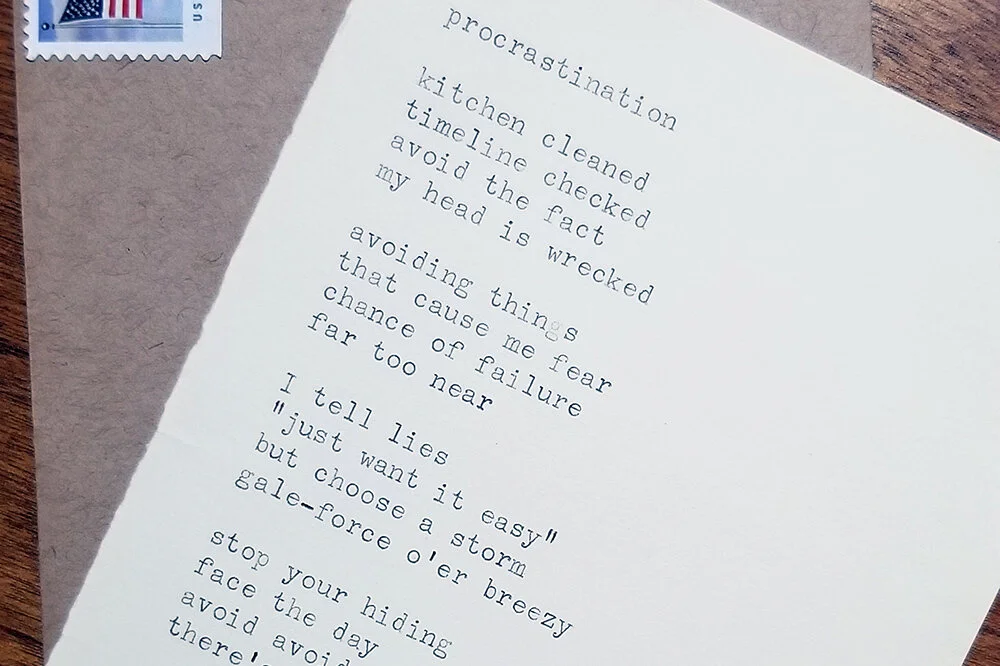 US
procrastination
kitchen cleaned
timeline checked
avoid the fact
my head is wrecked
avoiding things
that cause me fear
chance of failure
far too near
I tell lies
"just want it easy"
but choose a storm
gale-force o'er breezy
stop your hiding
face the day
avoid